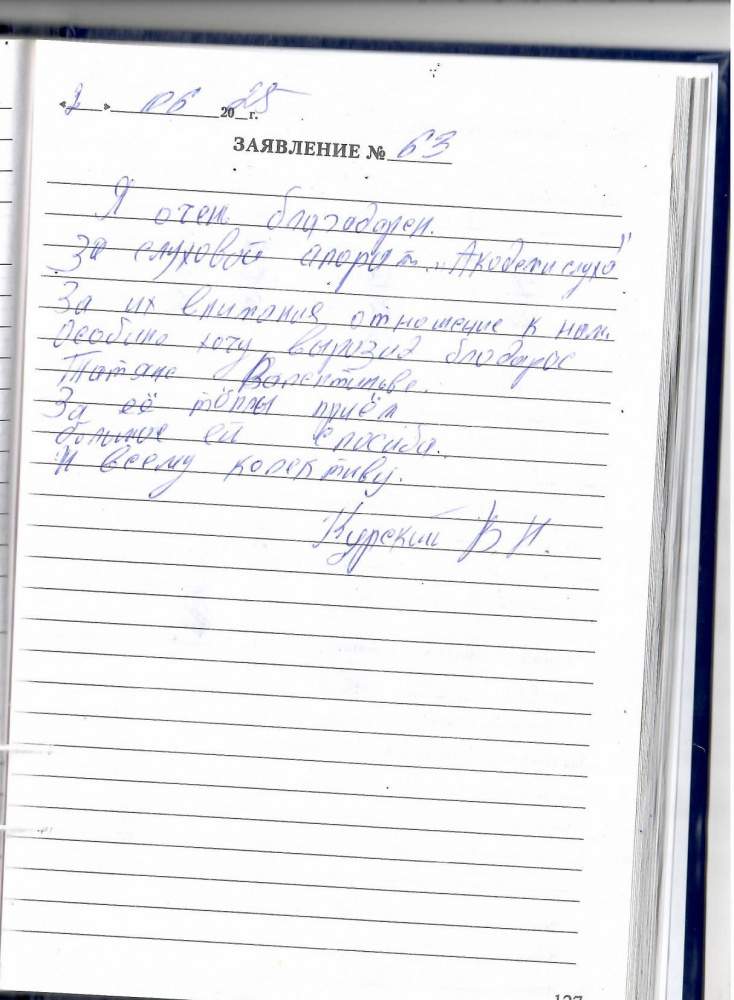 «2» 06 2025 г.
ЗА�явЛЕНИЕ № 63
Я очень благодарен.
За слуховой апарат „Академи слуха"
За их внимания отношение к нам.
Особино хочу выразид благодарос
Татяне Валентиньве.
За её тёплы приём
большое ей спосиба.
И всему колективу.
Курский В Н.
127